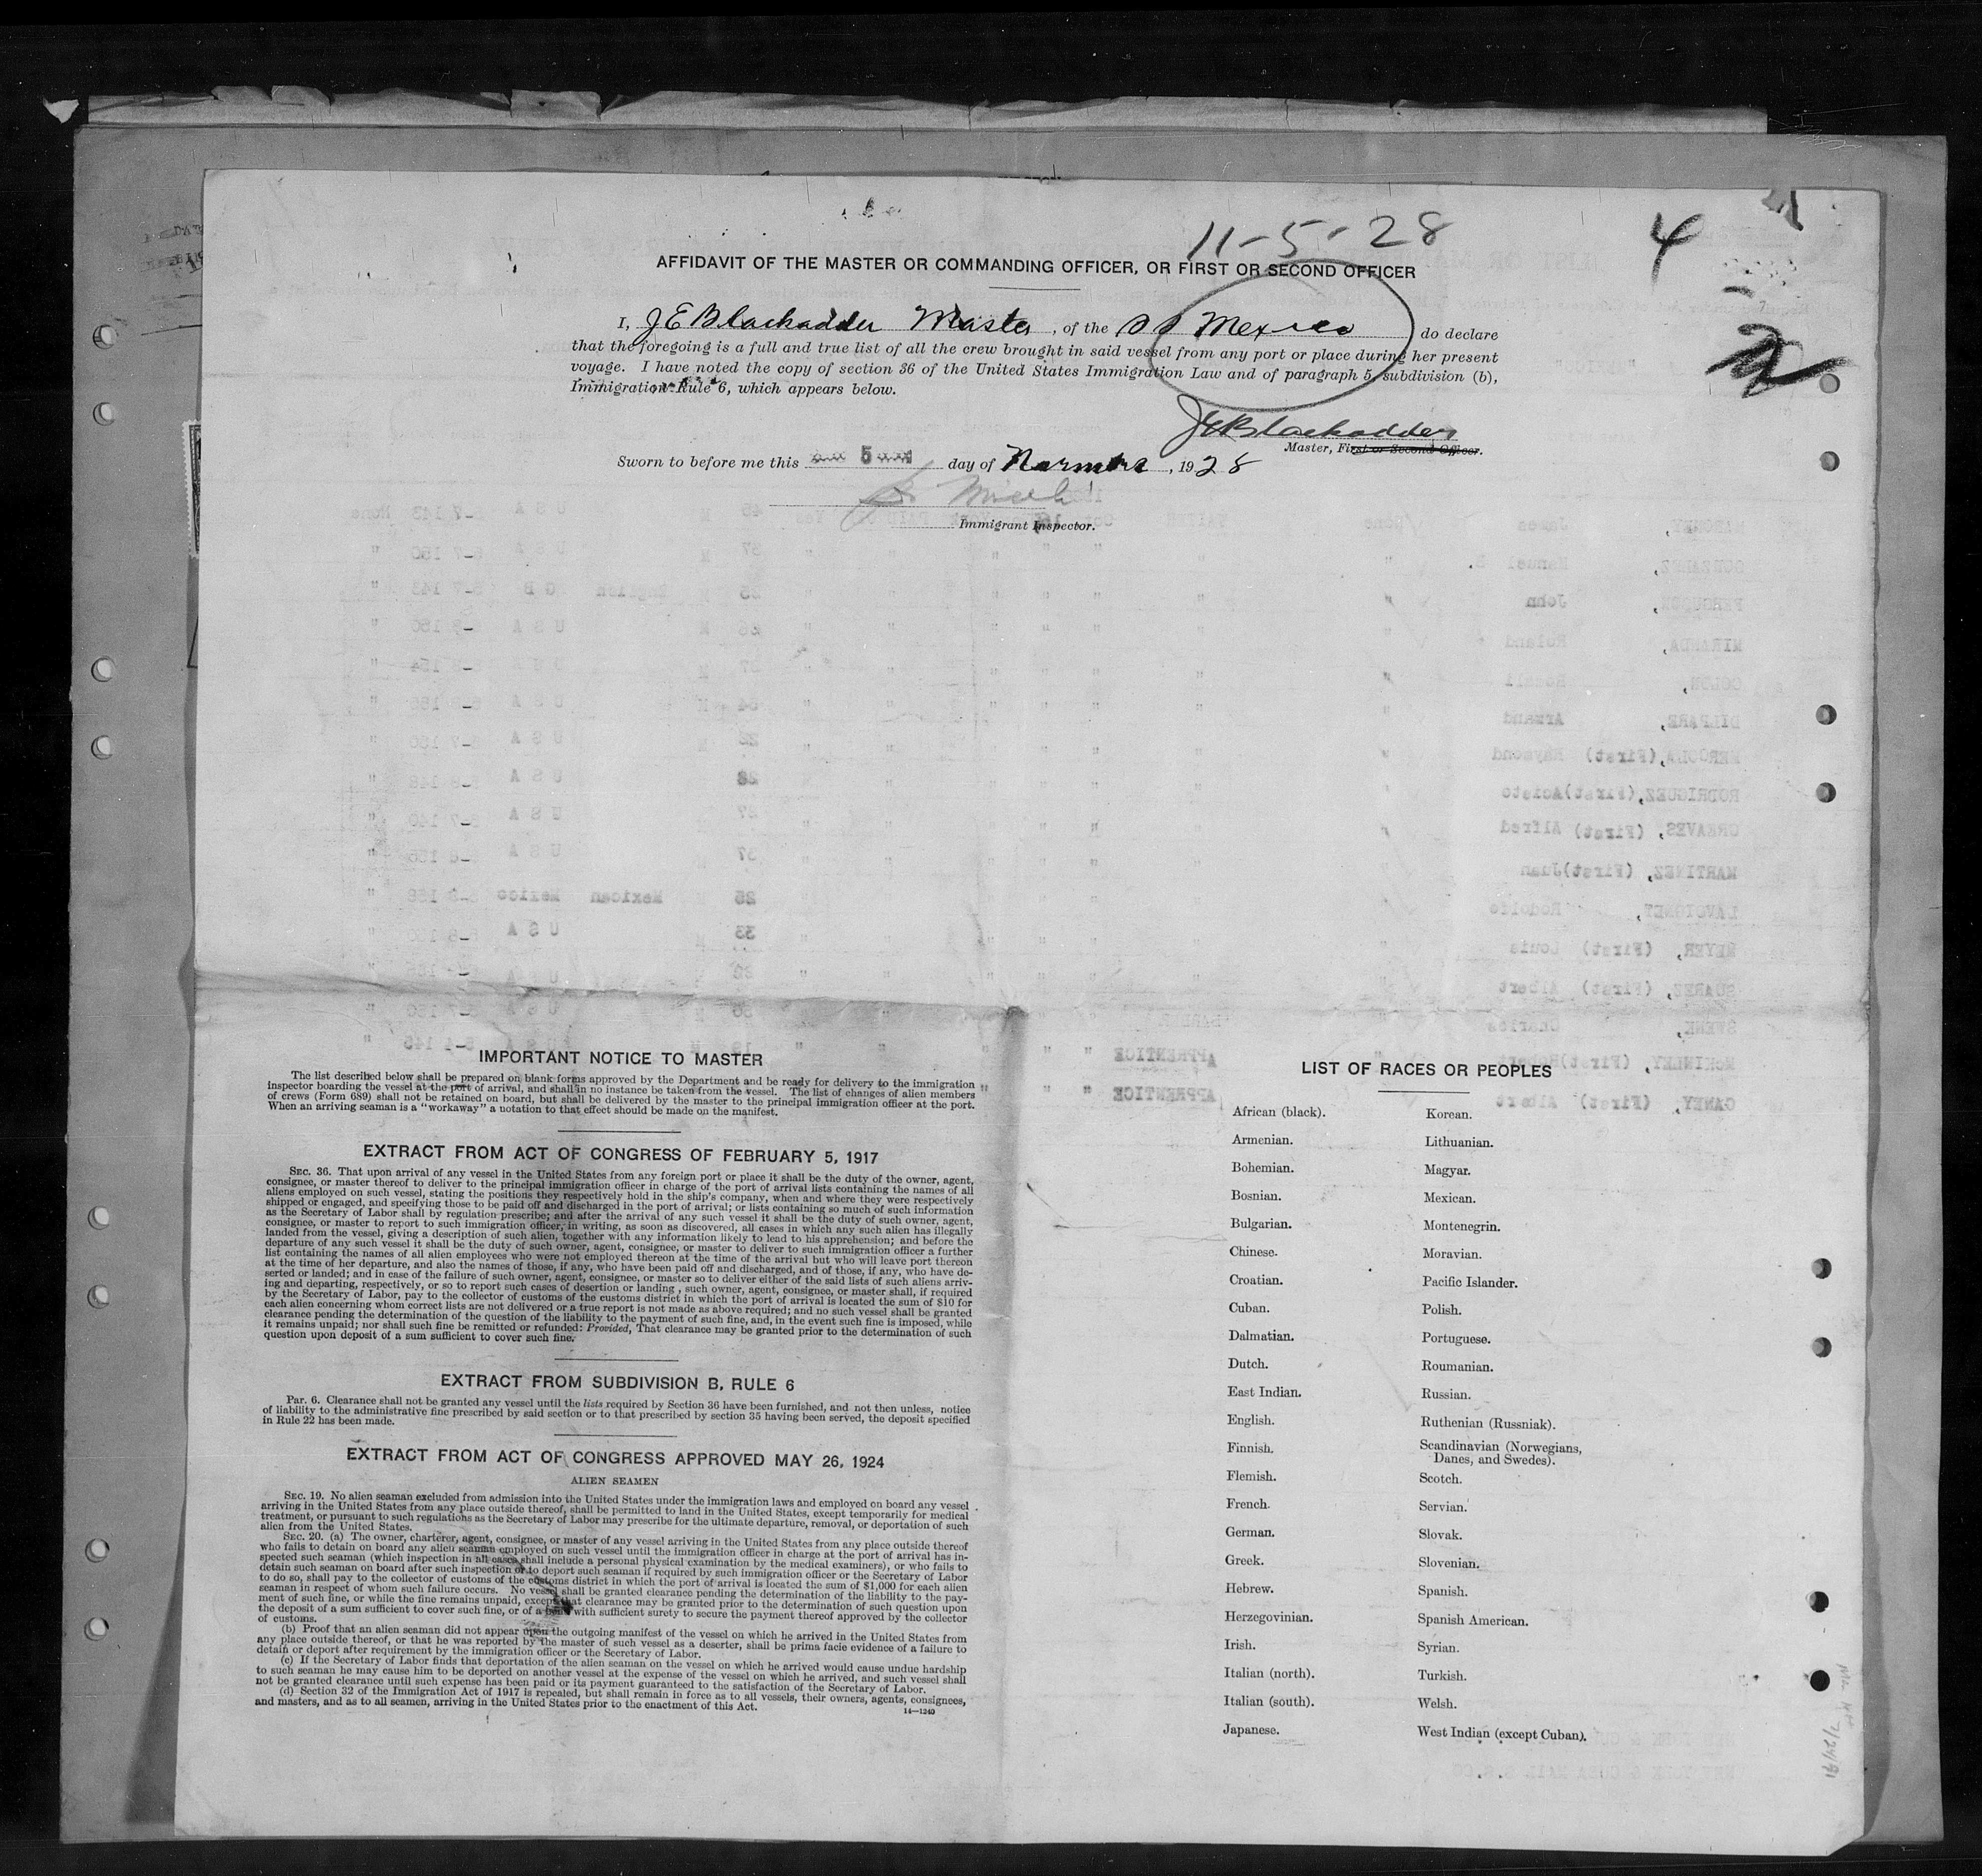 11-5-28
4
2
AFFIDAVIT OF THE MASTER OR COMMANDING OFFICER, OR FIRST OR SECOND OFFICER
I, J E Blackadder Master, of the S S Mexico do declare
that the foregoing is a full and true list of all the crew brought in said vessel from any port or place during her present
voyage. I have noted the copy of section 36 of the United States Immigration Law and of paragraph 5, subdivision (b),
Immigration Rule 6, which appears below.
J E Blackadder
Master, First or Second Officer.
Sworn to before me this 5 day of , 1928
Immigrant Inspector.
IMPORTANT NOTICE TO MASTER
The list described below shall be prepared on blank forms approved by the Department and be ready for delivery to the immigration
inspector boarding the vessel at the port of arrival, and shall in no instance be taken from the vessel. The list of changes of alien members
of crews (Form 689) shall not be retained on board, but shall be delivered by the master to the principal immigration officer at the port.
When an arriving seaman is a "workaway" a notation to that effect should be made on the manifest.
EXTRACT FROM ACT OF CONGRESS OF FEBRUARY 5, 1917
SEC. 36. That upon arrival of any vessel in the United States from any foreign port or place it shall be the duty of the owner, agent,
consignee, or master thereof to deliver to the principal immigration officer in charge of the port of arrival lists containing the names of all
aliens employed on such vessel, stating the positions they respectively hold in the ship's company, when and where they were respectively
shipped or engaged, and specifying those to be paid off and discharged in the port of arrival; or lists containing so much of such information
as the Secretary of Labor shall by regulation prescribe; and after the arrival of any such vessel it shall be the duty of such owner, agent,
consignee, or master to report to such immigration officer, in writing, as soon as discovered, all cases in which any such alien has illegally
landed from the vessel, giving a description of such alien, together with any information likely to lead to his apprehension; and before the
departure of any such vessel it shall be the duty of such owner, agent, consignee, or master to deliver to such immigration officer a further
list containing the names of all alien employees who were not employed thereon at the time of the arrival but who will leave port thereon
at the time of her departure, and also the names of those, if any, who have been paid off and discharged, and of those, if any, who have de-
serted or landed; and in case of the failure of such owner, agent, consignee, or master so to deliver either of the said lists of such aliens arriv-
ing and departing, respectively, or so to report such cases of desertion or landing, such owner, agent, consignee, or master shall, if required
by the Secretary of Labor, pay to the collector of customs of the customs district in which the port of arrival is located the sum of $10 for
each alien concerning whom correct lists are not delivered or a true report is not made as above required; and no such vessel shall be granted
clearance pending the determination of the question of the liability to the payment of such fine, and, in the event such fine is imposed, while
it remains unpaid; nor shall such fine be remitted or refunded: Provided, That clearance may be granted prior to the determination of such
question upon deposit of a sum sufficient to cover such fine.
EXTRACT FROM SUBDIVISION B, RULE 6
Par. 6. Clearance shall not be granted any vessel until the lists required by Section 36 have been furnished, and not then unless, notice
of liability to the administrative fine prescribed by said section or to that prescribed by section 35 having been served, the deposit specified
in Rule 22 has been made.
EXTRACT FROM ACT OF CONGRESS APPROVED MAY 26, 1924
ALIEN SEAMEN
SEC. 19. No alien seaman excluded from admission into the United States under the immigration laws and employed on board any vessel
arriving in the United States from any place outside thereof, shall be permitted to land in the United States, except temporarily for medical
treatment, or pursuant to such regulations as the Secretary of Labor may prescribe for the ultimate departure, removal, or deportation of such
alien from the United States.
SEC. 20. (a) The owner, charterer, agent, consignee, or master of any vessel arriving in the United States from any place outside thereof
who fails to detain on board any alien seaman employed on such vessel until the immigration officer in charge at the port of arrival has in-
spected such seaman (which inspection in all cases shall include a personal physical examination by the medical examiners), or who fails to
detain such seaman on board after such inspection or to deport such seaman if required by such immigration officer or the Secretary of Labor
to do so, shall pay to the collector of customs of the customs district in which the port of arrival is located the sum of $1,000 for each alien
seaman in respect of whom such failure occurs. No vessel shall be granted clearance pending the determination of the liability to the pay-
ment of such fine, or while the fine remains unpaid, except that clearance may be granted prior to the determination of such question upon
the deposit of a sum sufficient to cover such fine, or of a bond with sufficient surety to secure the payment thereof approved by the collector
of customs.
(b) Proof that an alien seaman did not appear upon the outgoing manifest of the vessel on which he arrived in the United States from
any place outside thereof, or that he was reported by the master of such vessel as a deserter, shall be prima facie evidence of a failure to
detain or deport after requirement by the immigration officer or the Secretary of Labor.
(c) If the Secretary of Labor finds that deportation of the alien seaman on the vessel on which he arrived would cause undue hardship
to such seaman he may cause him to be deported on another vessel at the expense of the vessel on which he arrived, and such vessel shall
not be granted clearance until such expense has been paid or its payment guaranteed to the satisfaction of the Secretary of Labor.
(d) Section 32 of the Immigration Act of 1917 is repealed, but shall remain in force as to all vessels, their owners, agents, consignees,
and masters, and as to all seamen, arriving in the United States prior to the enactment of this Act.
14—1240
LIST OF RACES OR PEOPLES
African (black).
Armenian.
Bohemian.
Bosnian.
Bulgarian.
Chinese.
Croatian.
Cuban.
Dalmatian.
Dutch.
East Indian.
English.
Finnish.
Flemish.
French.
German.
Greek.
Hebrew.
Herzegovinian.
Irish.
Italian (north).
Italian (south).
Japanese.
Korean.
Lithuanian.
Magyar.
Mexican.
Montenegrin.
Moravian.
Pacific Islander.
Polish.
Portuguese.
Roumanian.
Russian.
Ruthenian (Russniak).
Scandinavian (Norwegians,
Danes, and Swedes).
Scotch.
Servian.
Slovak.
Slovenian.
Spanish.
Spanish American.
Syrian.
Turkish.
Welsh.
West Indian (except Cuban).